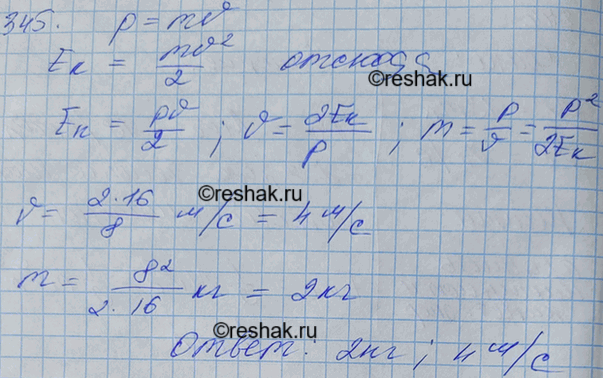 345. p = mϑ
Eк = mϑ²/2 отсюда
reshak.ru
Eк = pϑ/2 ; ϑ = 2Eк/p ; m = p/ϑ = p²/2Eк
reshak.ru
ϑ = 2·16/8 м/с = 4 м/с
m = 8²/2·16 кг = 2кг
reshak.ru
Ответ: 2кг ; 4 м/с
reshak.ru